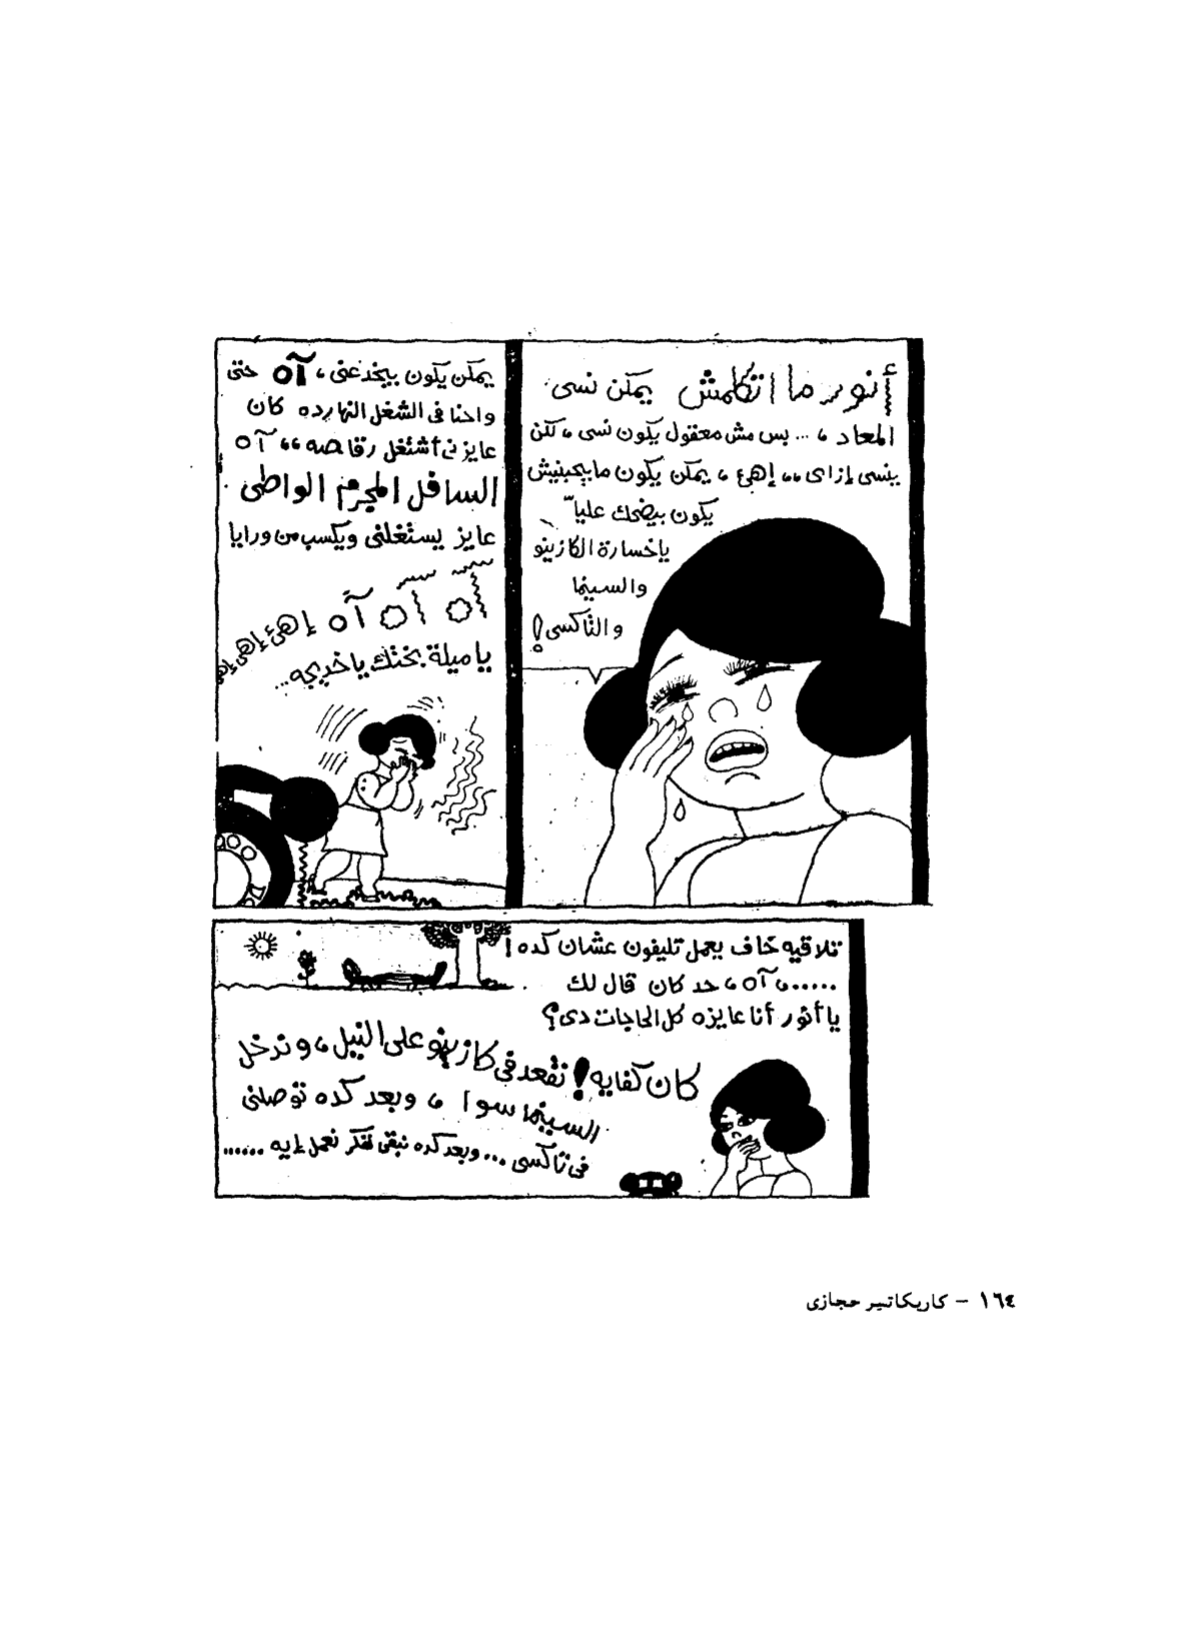 أنور ما اتكلمش يمكن نسى
المعاد ، ... بس مش معقول يكون نسى ، لكن
ينسى إزاى ،، إهئ ، يمكن يكون ما بيحبنيش
يكون بيضحك عليا
يا خسارة الكازينو
والسينما
والتاكسى !
يمكن يكون بيخدعنى ، آه حتى
واحنا فى الشغل النهارده كان
عايزنى أشتغل رقاصه ،، آه
السافل المجرم الواطى .
عايز يستغلنى ويكسب من ورايا
آه آه آه إهئ إهئ إهئ
يا ميلة بختك يا خديجه ...
تلاقيه خاف يعمل تليفون عشان كده !
..... ، آه ، حد كان قال لك
يا أنور أنا عايزه كل الحاجات دى ؟
كان كفايه ! نقعد فى كازينو على النيل ، وندخل
السينما سوا ، وبعد كده توصلنى
فى تاكسى ... وبعد كده نبقى نفكر نعمل إيه ......
١٦٤ – كاريكاتير حجازى